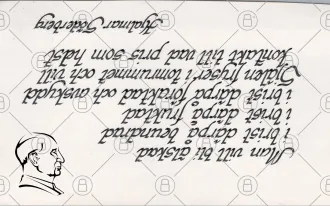 Man vill bli älskad
i brist därpå beundrad
i brist därpå fruktad
i brist därpå föraktad och avskydd
Själen fryser i tomrummet och vill
kontakt till vad pris som helst
Hjalmar Söderberg